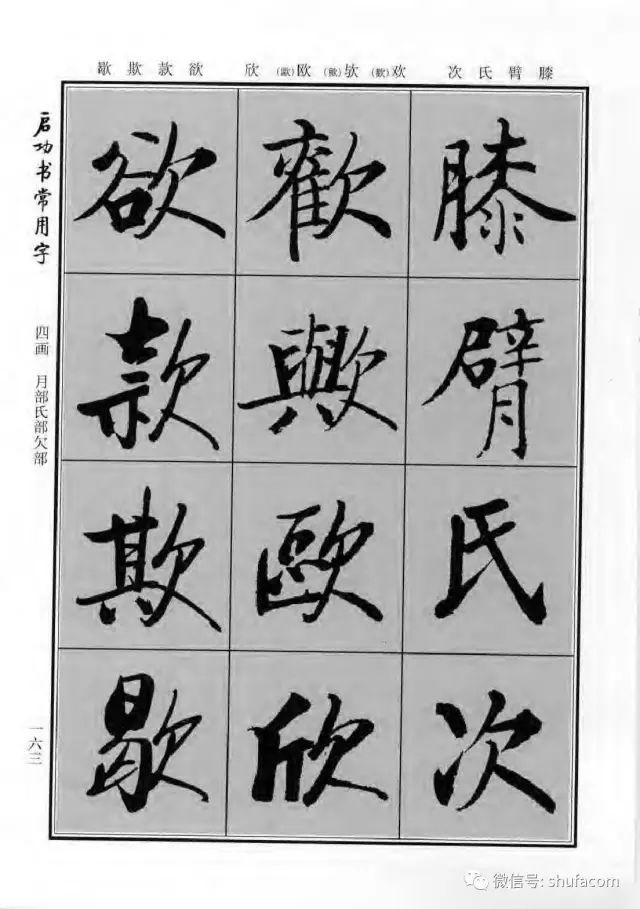 膝臂氏次 欢(歡)欤(歟)欧(歐)欣 欲款欺歇
膝臂氏次
歡歟歐欣
欲款欺歇
启功书常用字
四画 月部氏部欠部
一六三
微信号: shufacom